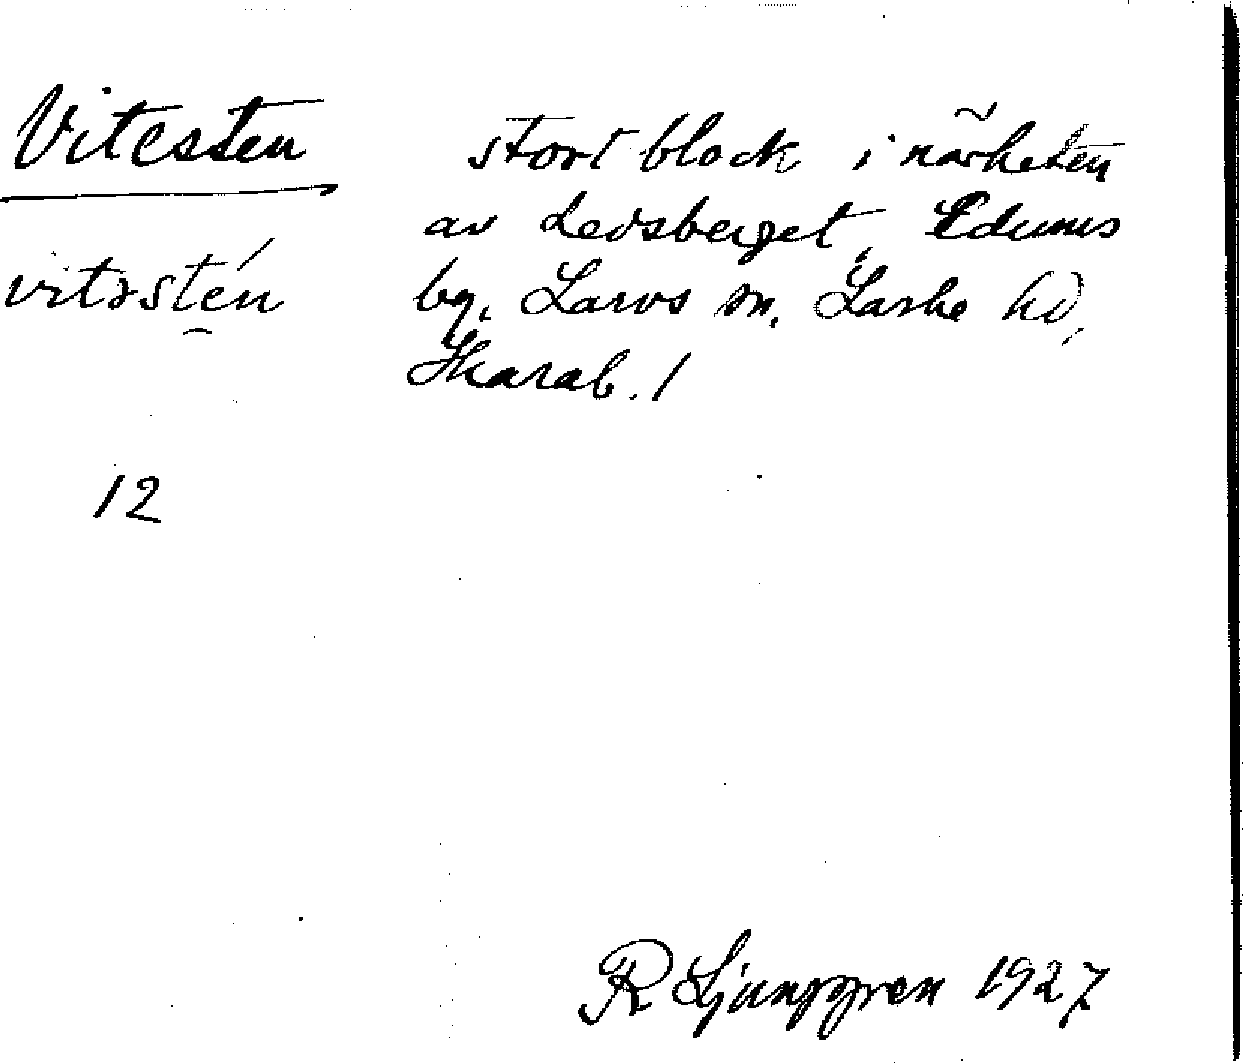 Vitesten
stort block i närheten
av Ledsberget, Edums
by, Larvs sn, Laske hd,
Skarab. l
vitəstén
12
R Ljunggren 1927